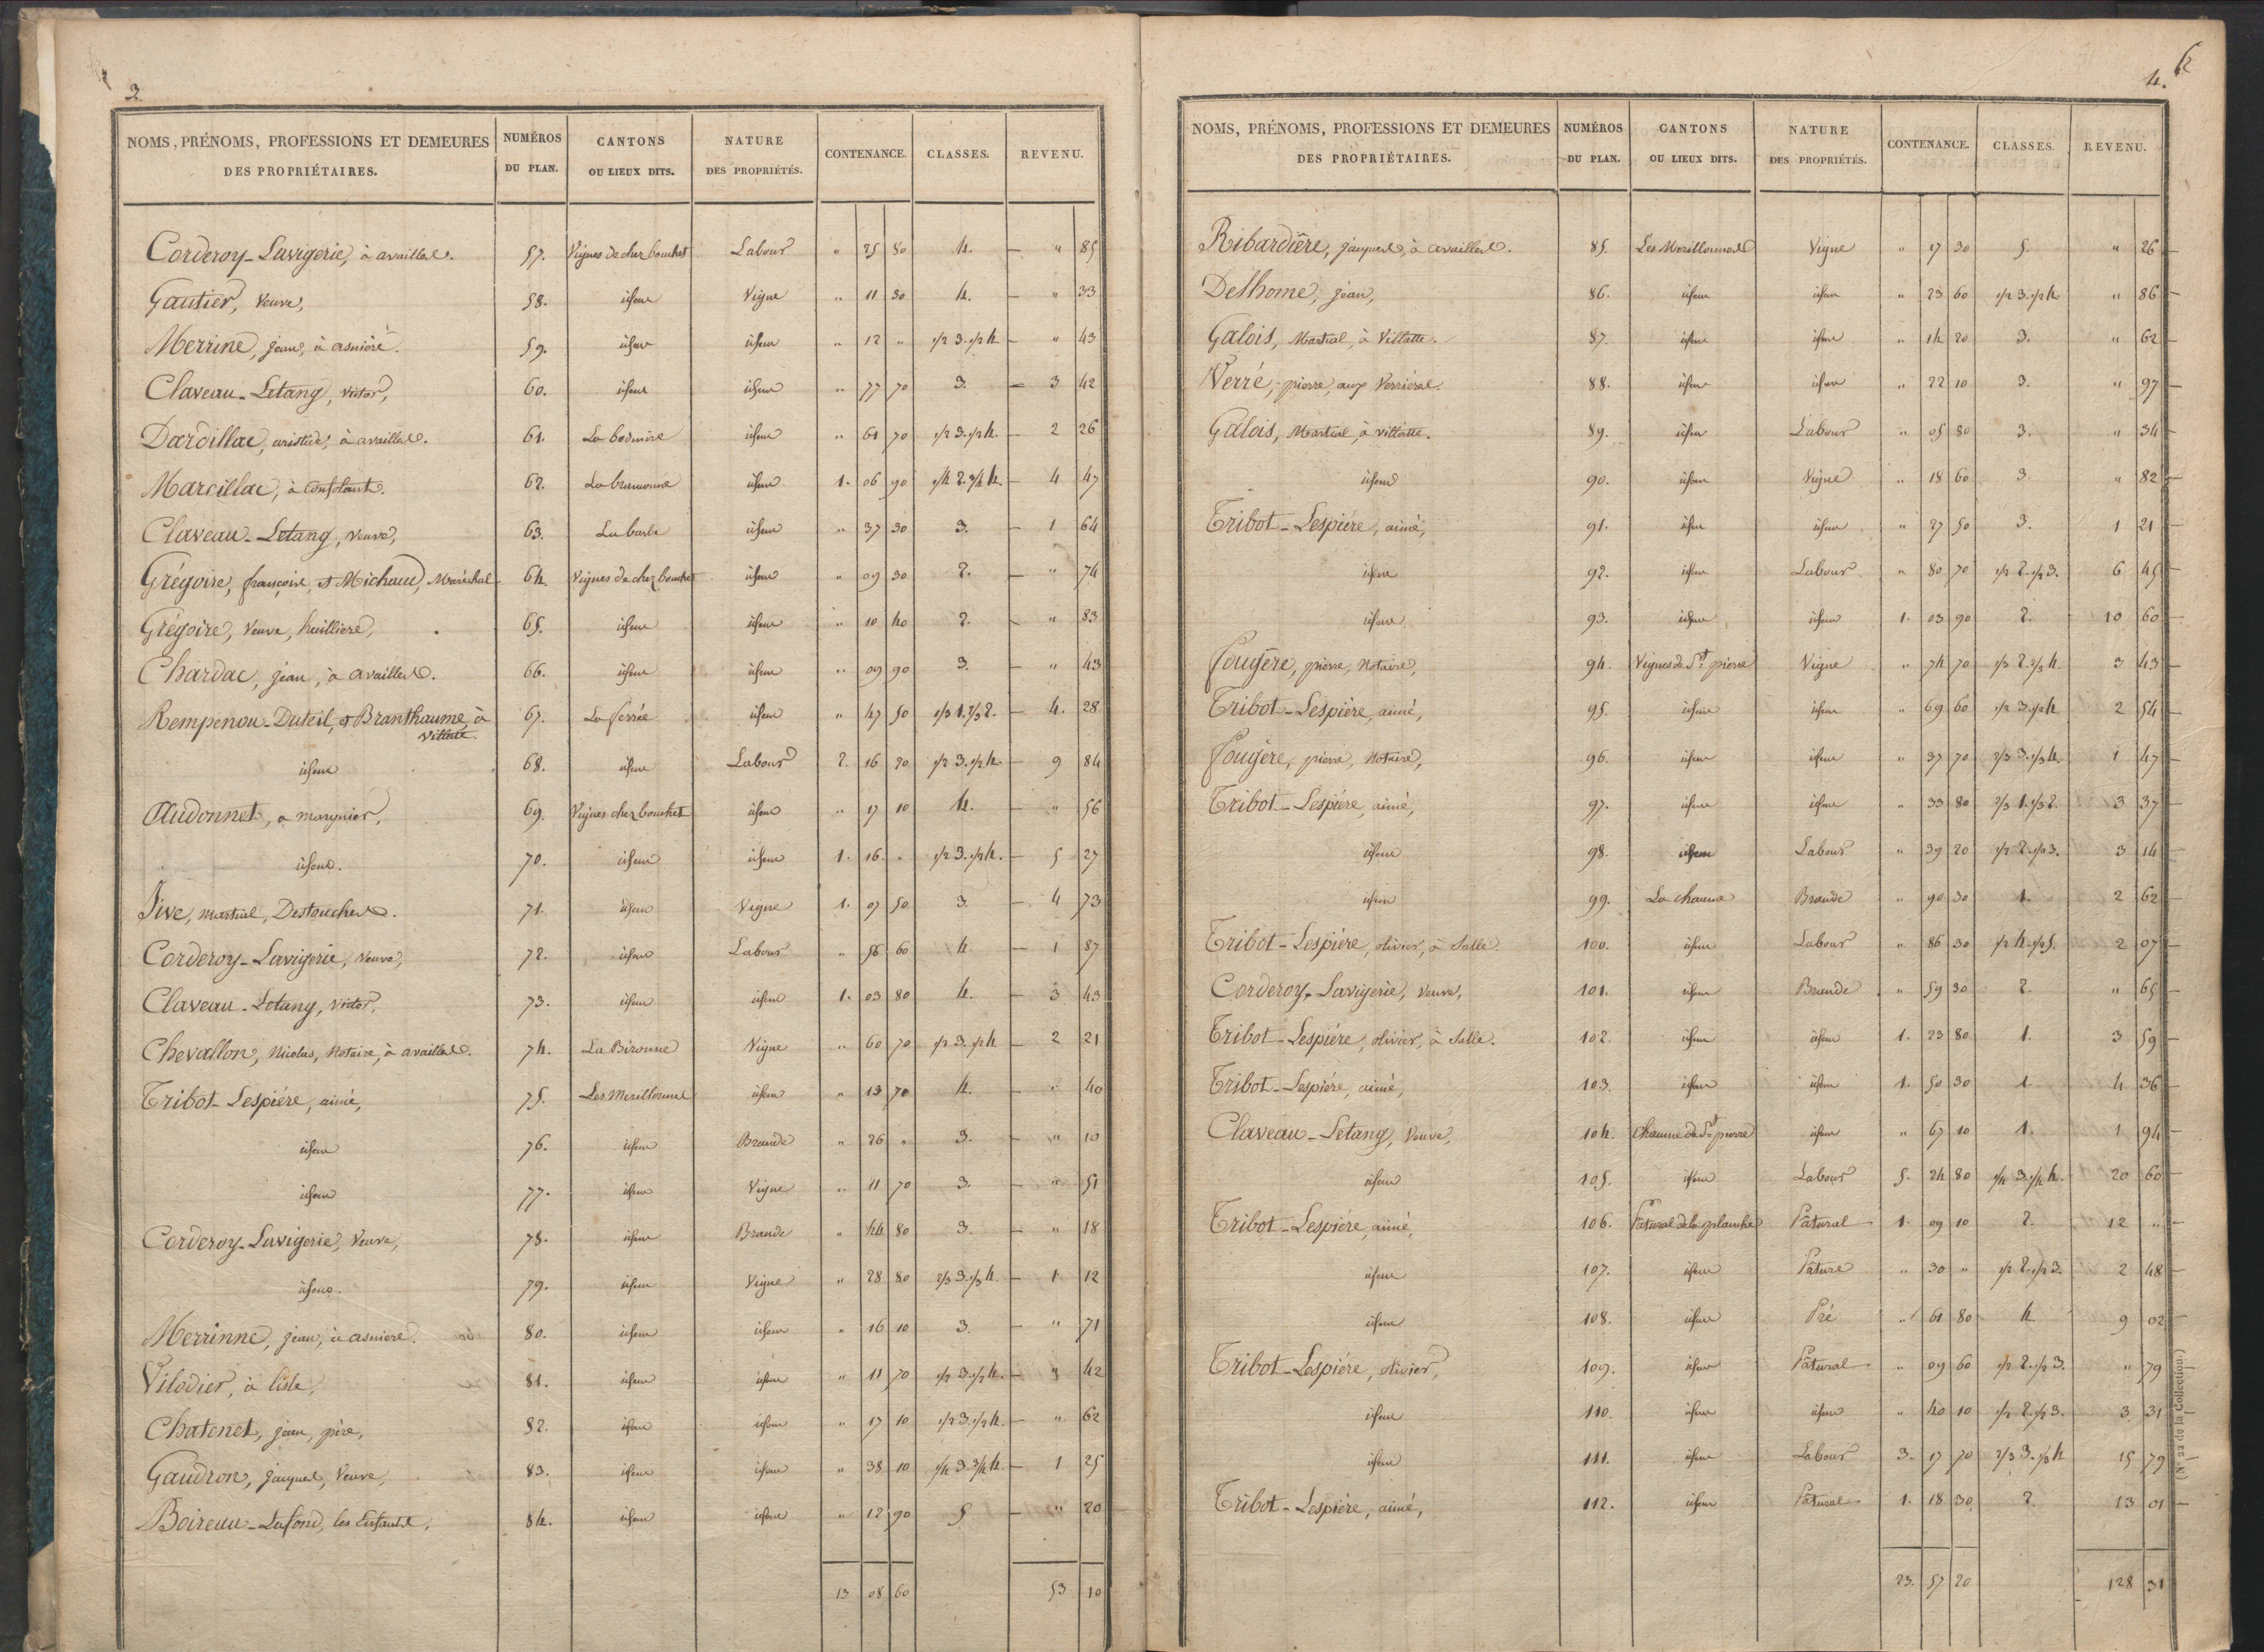 3
NOMS, PRÉNOMS, PROFESSIONS ET DEMEURES DES PROPRIÉTAIRES. NUMÉROS DU PLAN. CANTONS OU LIEUX DITS. NATURE DES PROPRIÉTÉS. CONTENANCE. CLASSES. REVENU.
Corderoy-Lavigerie, à availles. 57. Vignes de chez bouchet Labour " 25 80 4. — " 85
Gautier, Veuve, 58. idem Vigne " 11 30 4. — " 33
Merrine, jean, à asniére. 59. idem idem " 12 " 1/2 3. 1/2 4 — " 43
Claveau-Letang, victor, 60. idem idem " 77 70 3. — 3 42
Dardillac, aristide, à availles. 61. La bodinire idem " 61 70 1/2 3. 1/2 4. — 2 26
Marcillac, à Confolant. 62. La bramonne idem 1. 06 90 1/4 2. 3/4 4. — 4 47
Claveau-Letang, Veuve, 63. La barde idem " 37 30 3. — 1 64
Grégoire, françois, et Michaud, Maréchal 64. Vignes de chez bouchet idem " 09 30 2. — " 74
Grégoire, Veuve, huilliere, 65. idem idem " 10 40 2. — " 83
Chardac, jean, à availles. 66. idem idem " 09 90 3. — " 43
Rempenou-Duteil, et Branthaume, à Villatte. 67. La ferrée idem " 47 50 1/3 1. 2/3 2. — 4. 28
idem 68. idem Labour 2. 16 20 1/2 3. 1/2 4 — 9 84
Audonnet, a margnier, 69. Vignes chez bouchet idem " 17 10 4. — " 56
idem. 70. idem idem 1. 16. " 1/2 3. 1/2 4. — 5 27
Sive, martial, Destouches. 71. idem Vigne 1. 07 50 3. — 4 73
Corderoy-Lavigerie, Veuve, 72. idem Labour " 56 60 4. — 1 87
Claveau-Letang, victor, 73. idem idem 1. 03 80 4. — 3 43
Chevallon, Nicolas, Notaire, à availles. 74. La Bironne Vigne " 60 70 1/2 3. 1/2 4 — 2 21
Tribot-Lespiére, aimé, 75. Les Merillonnes idem " 13 70 4. — " 40
idem 76. idem Brande " 26 " 3. — " 10
idem 77. idem Vigne " 11 70 3. — " 51
Corderoy-Lavigerie, Veuve, 78. idem Brande " 44 80 3. — " 18
idem. 79. idem Vigne " 28 80 2/3 3. 1/3 4. — 1 12
Merrinne, jean, à asniere. 80. idem idem " 16 10 3. — " 71
Vilodier, à lisle, 81. idem idem " 11 70 1/2 3. 1/2 4. — " 42
Chatenet, jean, père, 82. idem idem " 17 10 1/2 3. 1/2 4. — " 62
Gaudron, jacques, Veuve, 83. idem idem " 38 10 1/4 3. 3/4 4. — 1 25
Boireau-Lafond, les Enfants, 84. idem idem " 12 90 5 — " 20
13 08 60 53 10
4. 6
NOMS, PRÉNOMS, PROFESSIONS ET DEMEURES DES PROPRIÉTAIRES. NUMÉROS DU PLAN. CANTONS OU LIEUX DITS. NATURE DES PROPRIÉTÉS. CONTENANCE. CLASSES. REVENU.
Ribardière, jacques, à availles. 85. Les Merillonnes Vigne " 17 30 5. " 26 —
Delhome, jean, 86. idem idem " 23 60 1/2 3. 1/2 4. " 86 —
Galois, Martial, à Villatte. 87. idem idem " 14 20 3. " 62 —
Verré, pierre, aux Verriéres. 88. idem idem " 22 10 3. " 97 —
Galois, Martial, à villatte. 89. idem Labour " 05 80 3. " 34 —
idem 90. idem Vigne " 18 60 3. " 82 —
Tribot-Lespiére, aimé, 91. idem idem " 27 50 3. 1 21 —
idem 92. idem Labour " 80 70 1/2 2. 1/2 3. 6 45 —
idem 93. idem idem 1. 03 90 2. 10 60 —
Fougère, pierre, Notaire, 94. Vignes de St. pierre Vigne " 74 70 1/3 2. 2/3 4. 3 43 —
Tribot-Lespiére, aimé, 95. idem idem " 69 60 1/2 3. 1/2 4 2 54 —
Fougère, pierre, Notaire, 96. idem idem " 37 70 2/3 3. 1/3 4. 1 47 —
Tribot-Lespiére, aimé, 97. idem idem " 33 80 2/3 1. 1/3 2. 3 37 —
idem 98. idem Labour " 39 20 1/2 2. 1/2 3. 3 14 —
idem 99. La chaume Brande " 90 30 1. 2 62 —
Tribot-Lespiére, olivier, à Salle. 100. idem Labour " 86 30 1/2 4. 1/2 5. 2 07 —
Corderoy-Lavigerie, Veuve, 101. idem Brande " 59 30 2. " 65 —
Tribot-Lespiére, olivier, à Salle. 102. idem idem 1. 23 80 1. 3 59 —
Tribot-Lespiére, aimé, 103. idem idem 1. 50 30 1. 4 36 —
Claveau-Letang, Veuve, 104. Chaume de St. pierre idem " 67 10 1. 1 94 —
idem 105. idem Labour 5. 24 80 3. 4. 20 60 —
Tribot-Lespiére, aimé, 106. Patural de la planche Pâtural 1. 09 10 2. 12 " —
idem 107. idem Pâture " 30 " 1/2 2. 1/2 3. 2 48 —
idem 108. idem Pré " 61 80 4. 9 02 —
Tribot-Lespiére, olivier, 109. idem Pâtural " 09 60 1/2 2. 1/2 3. " 79 —
idem 110. idem idem " 40 10 1/2 2. 1/2 3. 3 31 —
idem 111. idem Labour 3. 17 70 2/3 3. 1/3 4 15 79 —
Tribot-Lespiére, aimé, 112. idem Pâtural 1. 18 30 2. 13 01 —
23. 57 20 128 31
(N° 22 de la Collection.)